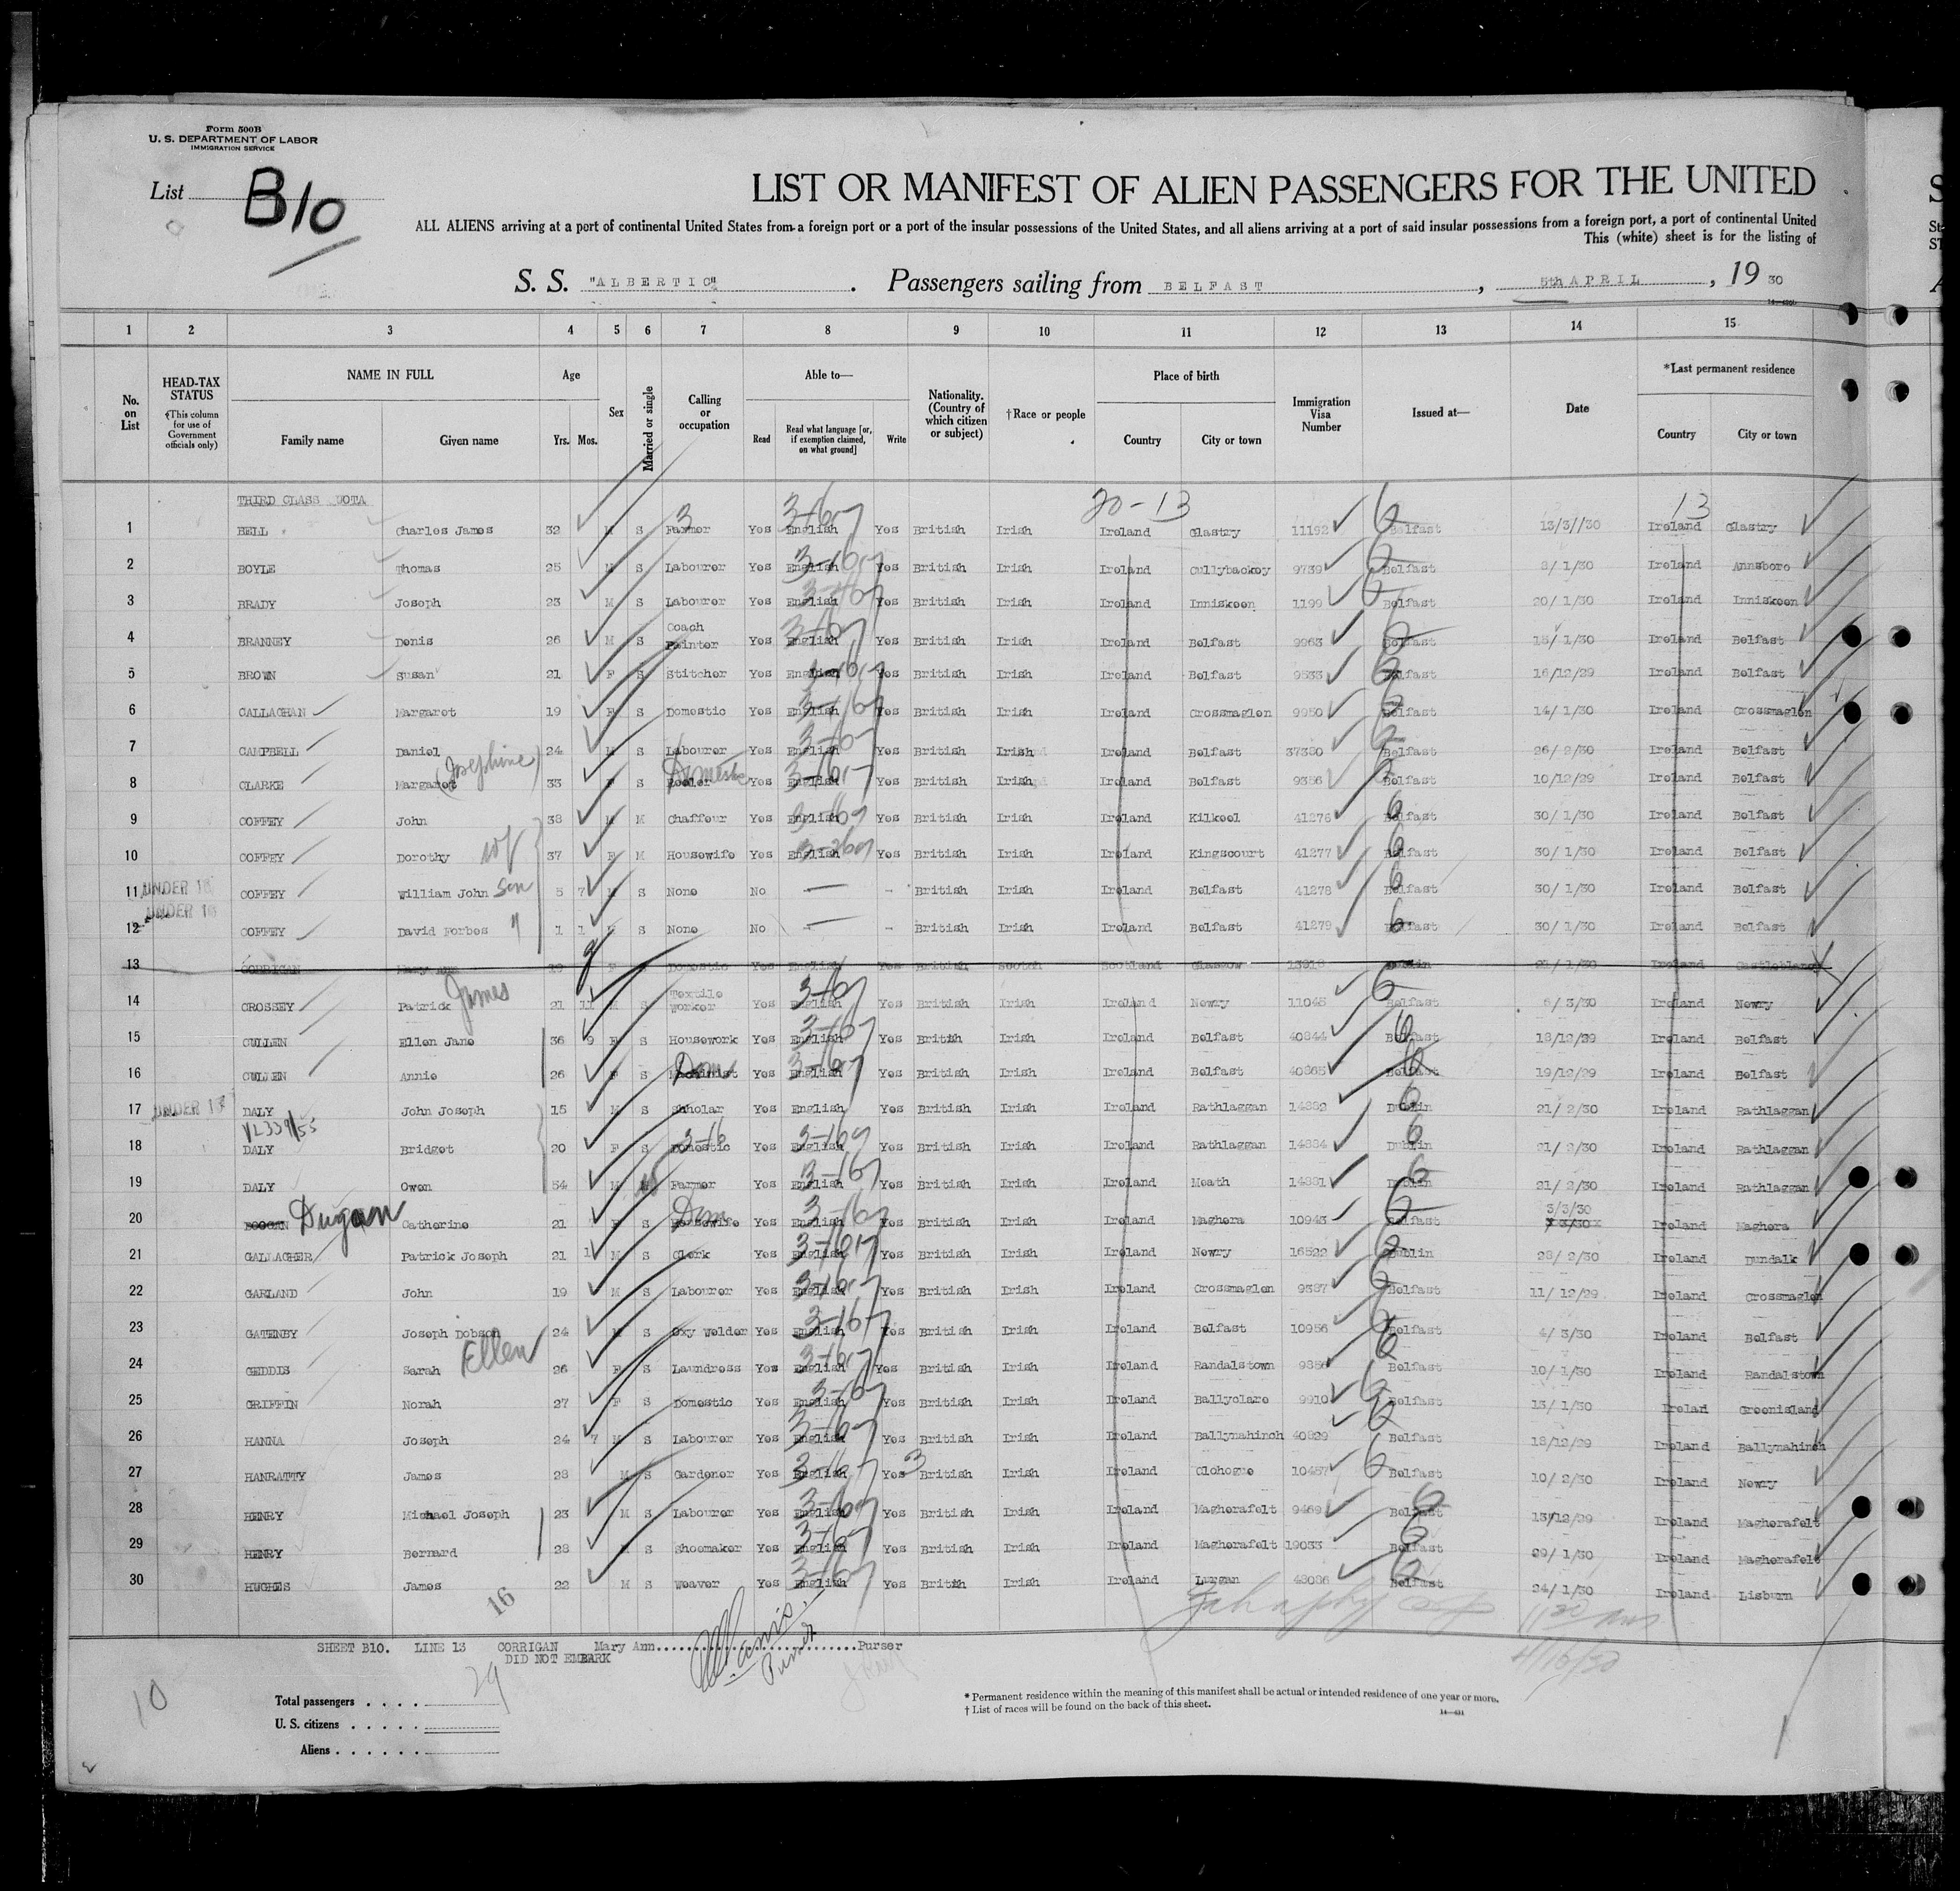 Form 500B
U. S. DEPARTMENT OF LABOR
IMMIGRATION SERVICE
List B10
LIST OR MANIFEST OF ALIEN PASSENGERS FOR THE UNITED
ALL ALIENS arriving at a port of continental United States from a foreign port or a port of the insular possessions of the United States, and all aliens arriving at a port of said insular possessions from a foreign port, a port of continental United
This (white) sheet is for the listing of
S. S. "ALBERTIC". Passengers sailing from BELFAST, 5th APRIL, 19 30
1 2 3 4 5 6 7 8 9 10 11 12 13 14 15
No. on List
HEAD-TAX STATUS (This column for use of Government officials only)
NAME IN FULL Family name Given name
Age Yrs. Mos.
Sex
Married or single
Calling or occupation
Able to— Read Read what language [or, if exemption claimed, on what ground] Write
Nationality. (Country of which citizen or subject)
†Race or people
Place of birth Country City or town
Immigration Visa Number
Issued at—
Date
*Last permanent residence Country City or town
THIRD CLASS UOTA 20-13 13
1 BELL Charles James 32 M S Farmer Yes English Yes British Irish Ireland Glastry 11192 Belfast 13/3//30 Ireland Glastry
2 BOYLE Thomas 25 M S Labourer Yes English Yes British Irish Ireland Cullybackey 9739 Belfast 8/ 1/30 Ireland Annsboro
3 BRADY Joseph 23 M S Labourer Yes English Yes British Irish Ireland Inniskeen 1199 Belfast 20/ 1/30 Ireland Inniskeen
4 BRANNEY Denis 26 M S Coach Painter Yes English Yes British Irish Ireland Belfast 9963 Belfast 15/ 1/30 Ireland Belfast
5 BROWN Susan 21 F S Stitcher Yes English Yes British Irish Ireland Belfast 9533 Belfast 16/12/29 Ireland Belfast
6 CALLAGHAN Margaret 19 F S Domestic Yes English Yes British Irish Ireland Crossmaglen 9950 Belfast 14/ 1/30 Ireland Crossmaglen
7 CAMPBELL Daniel 24 M S Labourer Yes English Yes British Irish Ireland Belfast 37380 Belfast 26/ 2/30 Ireland Belfast
8 CLARKE Margaret (Josephine) 33 F S Reeler Domestic Yes English Yes British Irish Ireland Belfast 9356 Belfast 10/12/29 Ireland Belfast
9 COFFEY John 38 M M Chaffeur Yes English Yes British Irish Ireland Kilkeel 41276 Belfast 30/ 1/30 Ireland Belfast
10 COFFEY Dorothy wf 37 F M Housewife Yes English Yes British Irish Ireland Kingscourt 41277 Belfast 30/ 1/30 Ireland Belfast
11 UNDER 16 COFFEY William John Son 5 7 M S None No — - British Irish Ireland Belfast 41278 Belfast 30/ 1/30 Ireland Belfast
12 UNDER 16 COFFEY David Forbes " 1 1 S None No — - British Irish Ireland Belfast 41279 Belfast 30/ 1/30 Ireland Belfast
13 CORRIGAN Mary Ann 19 F Domestic Yes English Yes British Scotch Scotland Glasgow 13818 Dublin 21/ 1/30 Ireland Castleblaney
14 CROSSEY Patrick James 21 11 M S Textile Worker Yes English Yes British Irish Ireland Newry 11045 Belfast 6/ 3/30 Ireland Newry
15 CULLEN Ellen Jane 36 9 F S Housework Yes English Yes British Irish Ireland Belfast 40844 Belfast 18/12/29 Ireland Belfast
16 CULLEN Annie 26 F S Machinist Dom Yes English Yes British Irish Ireland Belfast 40865 Belfast 19/12/29 Ireland Belfast
17 UNDER 16 DALY John Joseph 15 M S Shholar Yes English Yes British Irish Ireland Rathlaggan 14882 Dublin 21/ 2/30 Ireland Rathlaggan
18 DALY Bridget 20 F S Domestic Yes English Yes British Irish Ireland Rathlaggan 14884 Dublin 21/ 2/30 Ireland Rathlaggan
19 DALY Owen 54 M W Farmer Yes English Yes British Irish Ireland Meath 14881 Dublin 21/ 2/30 Ireland Rathlaggan
20 DOOGAN Dugan Catherine 21 F S Housewife Dom Yes English Yes British Irish Ireland Maghera 10943 Belfast 3/3/30 Ireland Maghera
21 GALLAGHER Patrick Joseph 21 1 M S Clerk Yes English Yes British Irish Ireland Newry 16522 Dublin 28/ 2/30 Ireland Dundalk
22 GARLAND John 19 M S Labourer Yes English Yes British Irish Ireland Crossmaglen 9387 Belfast 11/ 12/29 Ireland Crossmaglen
23 GATENBY Joseph Dobson 24 M S Oxy Welder Yes English Yes British Irish Ireland Belfast 10956 Belfast 4/ 3/30 Ireland Belfast
24 GEDDIS Sarah Ellen 26 F S Laundress Yes English Yes British Irish Ireland Randalstown 9856 Belfast 10/ 1/30 Ireland Randalstown
25 GRIFFIN Norah 27 F S Domestic Yes English Yes British Irish Ireland Ballyclare 9910 Belfast 13/ 1/30 Irelad Greenisland
26 HANNA Joseph 24 7 M S Labourer Yes English Yes British Irish Ireland Ballynahinch 40829 Belfast 18/12/29 Ireland Ballynahinch
27 HANRATTY James 28 M S Gardener Yes English Yes British Irish Ireland Clohogue 10457 Belfast 10/ 2/30 Ireland Newry
28 HENRY Michael Joseph 23 M S Labourer Yes English Yes British Irish Ireland Magherafelt 9469 Belfast 13/12/29 Ireland Magherafelt
29 HENRY Bernard 28 M S Shoemaker Yes English Yes British Irish Ireland Magherafelt 19033 Belfast 29/ 1/30 Ireland Magherafelt
30 HUGHES James 22 M S Weaver Yes English Yes British Irish Ireland Lurgan 48086 Belfast 24/ 1/30 Ireland Lisburn
16
SHEET B10. LINE 13 CORRIGAN Mary Ann..............................Purser
DID NOT EMBARK
Purser
4/16/30
10
Total passengers . . . . 29
U. S. citizens . . . . .
Aliens . . . . . .
* Permanent residence within the meaning of this manifest shall be actual or intended residence of one year or more.
† List of races will be found on the back of this sheet.